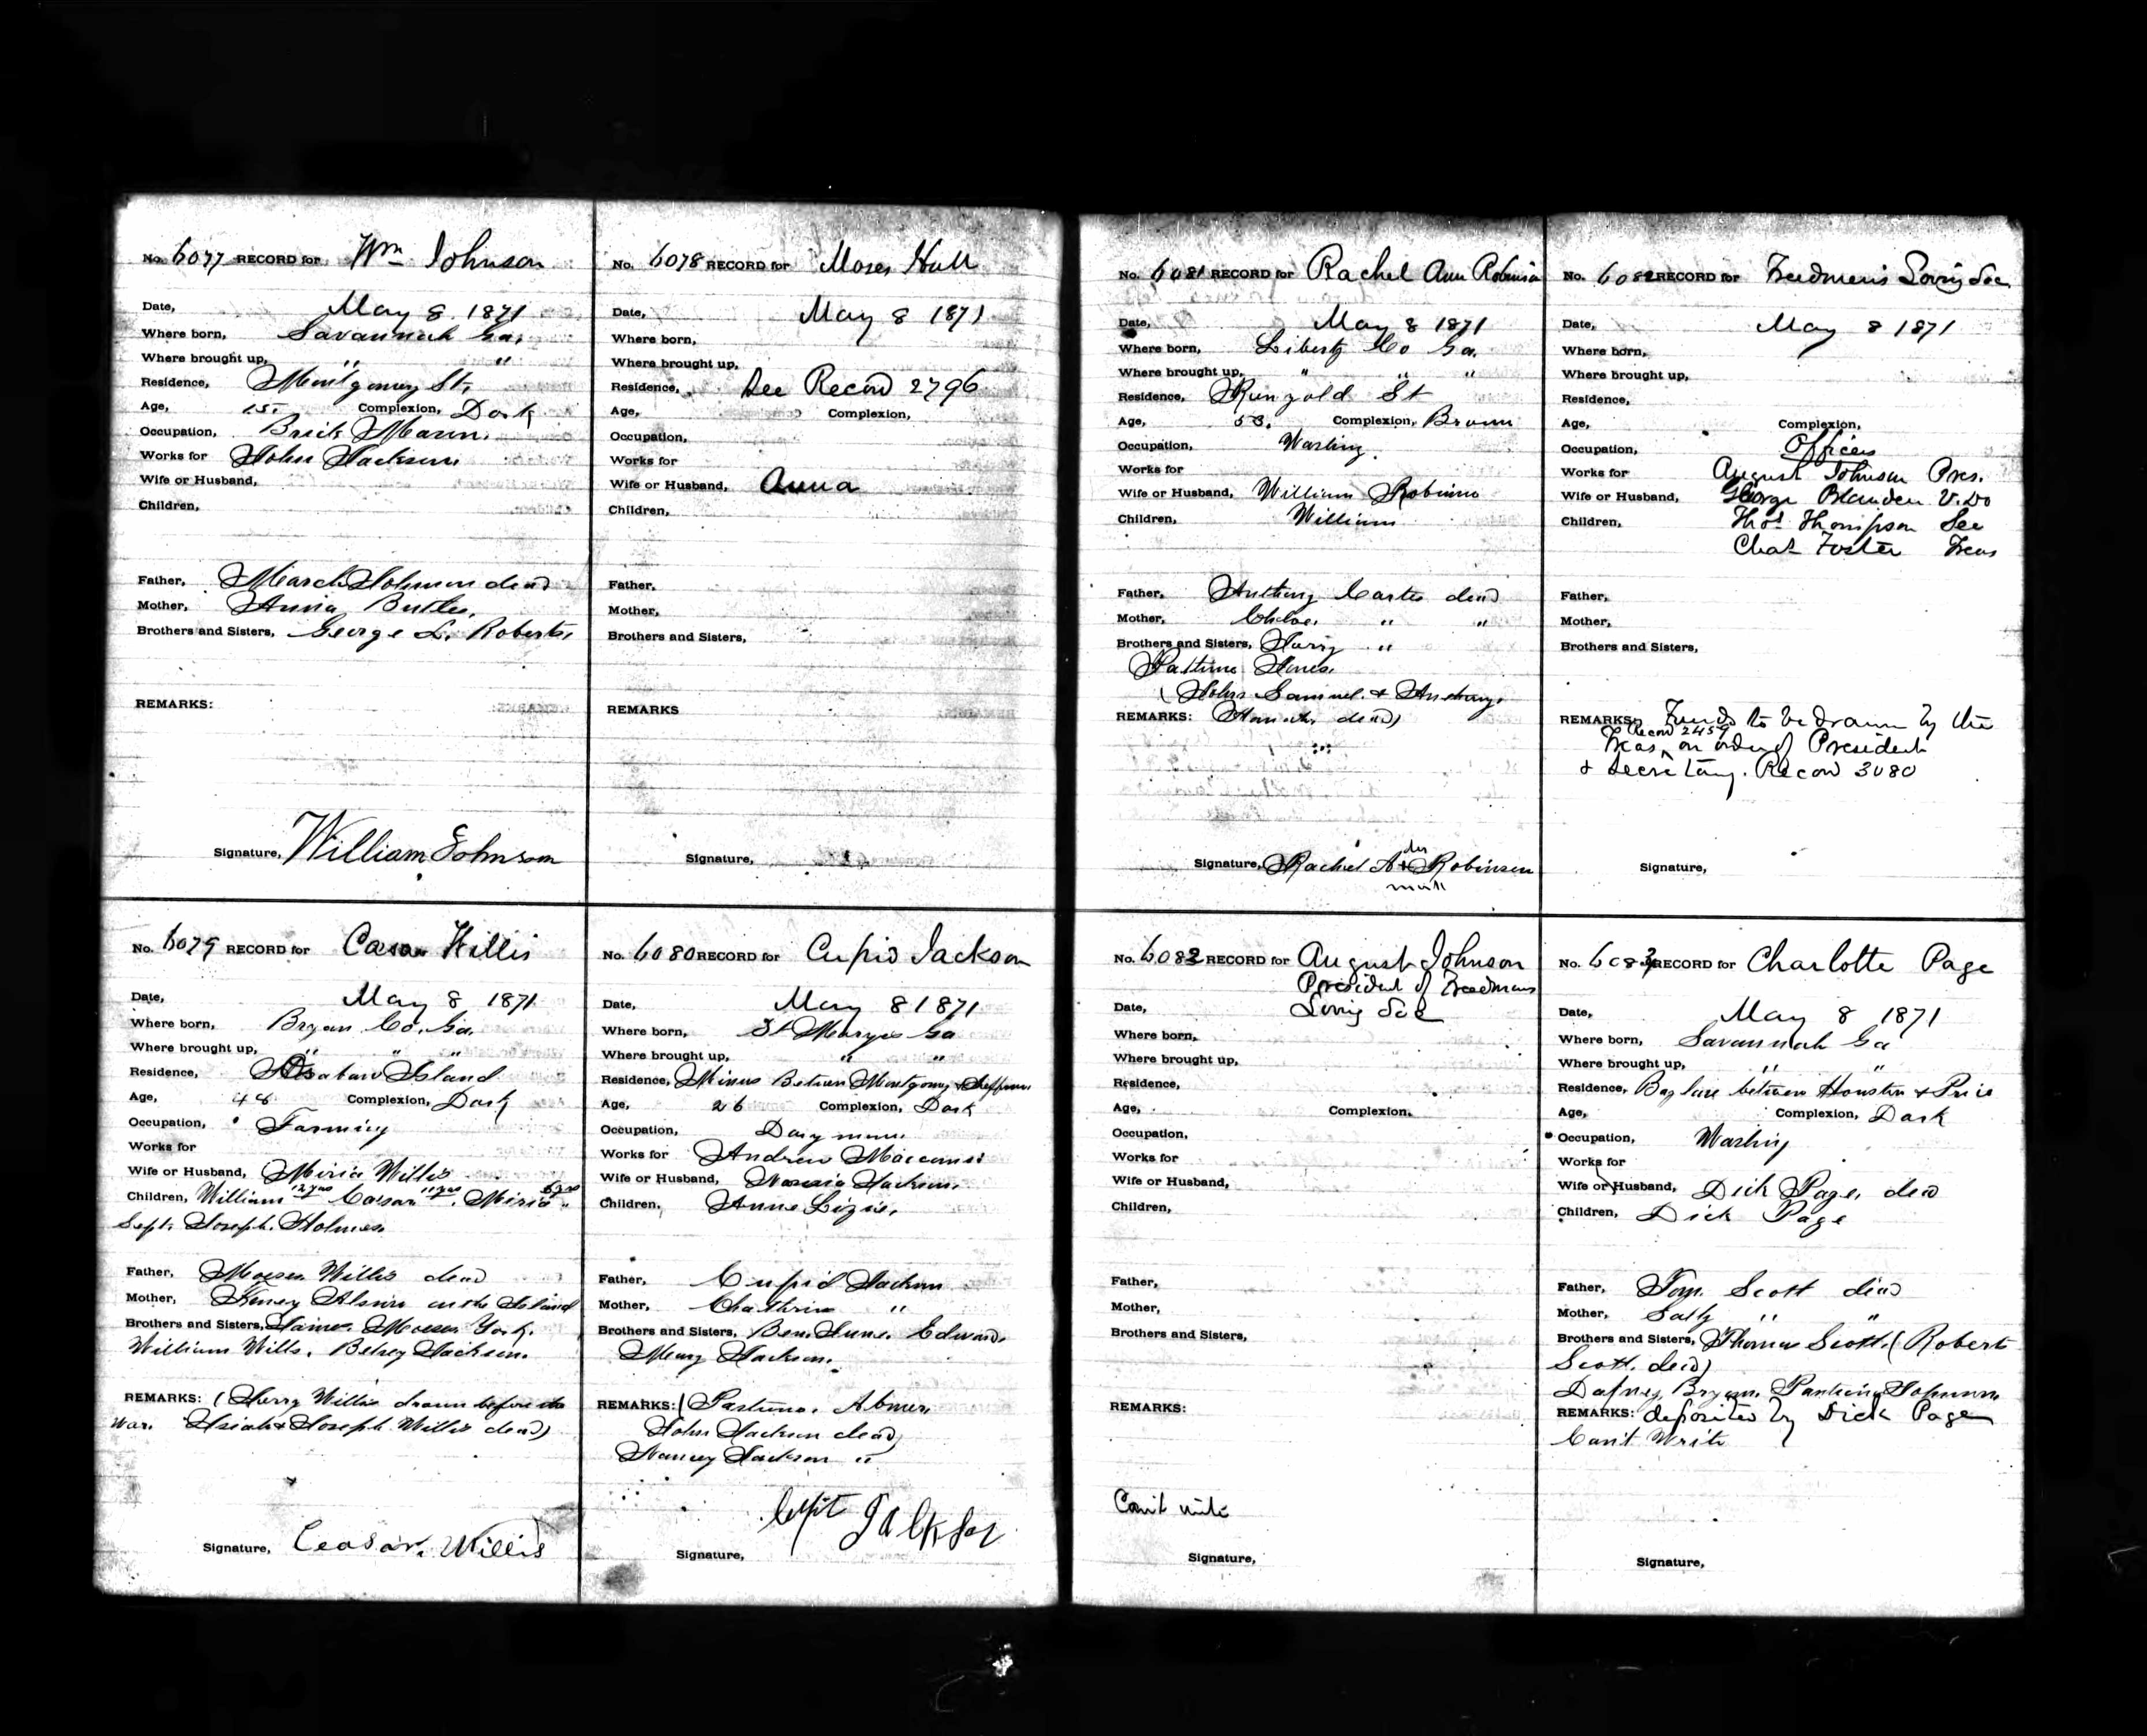 No. 6077 RECORD for Wm Johnson
Date, May 8 1871
Where born, Savannah Ga.
Where brought up, " "
Residence, Montgomery St.
Age, 15. Complexion, Dark
Occupation, Brick Mason.
Works for John Jackson.
Wife or Husband,
Children,
Father, March Johnson dead
Mother, Anna Butler.
Brothers and Sisters, George L. Roberts.
REMARKS:
Signature, William Johnson
No. 6078 RECORD for Moses Hall
Date, May 8 1871
Where born,
Where brought up,
Residence, See Record 2796
Age, Complexion,
Occupation,
Works for
Wife or Husband, Anna
Children,
Father,
Mother,
Brothers and Sisters,
REMARKS
Signature,
No. 6079 RECORD for Willis
Date, May 8 1871
Where born, Bryan Co. Ga.
Where brought up, " " "
Residence, Island
Age, 48 Complexion, Dark
Occupation, Farming
Works for
Wife or Husband, Miria Willis
Children, William 12 yrs Coesar 11 yrs. Miria
Sept. Joseph. Holmes.
Father, Moses Willis dead
Mother, on the Island
Brothers and Sisters, James. Moses York.
William Wills. Betsey Jackson.
REMARKS: (Harry Willis drown before the
War. Isiah & Joseph Willis dead)
Signature, Ceasar. Willis
No. 6080 RECORD for Cupid Jackson
Date, May 8 1871
Where born, St Marys Ga
Where brought up, " "
Residence, Between Montgomy & Jefferson
Age, 26 Complexion, Dark
Occupation, Dray man.
Works for Andrew
Wife or Husband, Jackson.
Children, Anna Lizie.
Father, Cupid Jackson
Mother, Chathrine "
Brothers and Sisters, Ben. June. Edward.
Mary Jackson.
REMARKS: (Pastime. Abner.
John Jackson dead)
Nancy Jackson "
Signature, Cupt Jackson
No. 6081 RECORD for Rachel Ann Robinson
Date, May 8 1871
Where born, Liberty Co Ga.
Where brought up, " " "
Residence, Ringold St
Age, 53. Complexion, Brown
Occupation, Washing.
Works for
Wife or Husband, William Robinson
Children, William
Father, Anthony Carter dead
Mother, Chloe. " "
Brothers and Sisters, Harry "
Pastime Jones.
(John Samuel & Anthony.
REMARKS: Hannah. dead)
Signature, Rachel A her + Robinson
mark
No. 6082 RECORD for Freedmen's Loving Soc
Date, May 8 1871
Where born,
Where brought up,
Residence,
Age, Complexion,
Occupation, Officers
Works for August Johnson Pres.
Wife or Husband, George Blanden V. Do
Children, Thos Thompson Sec
Chas Foster Treas
Father,
Mother,
Brothers and Sisters,
REMARKS: Funds to be drawn by the
Record 2459
Treas ^ on order of President
& Secretary. Record 3080
Signature,
No. 6083 RECORD for August Johnson
President of Freedmans
Date, Loving Soc
Where born,
Where brought up,
Residence,
Age, Complexion.
Occupation,
Works for
Wife or Husband,
Children,
Father,
Mother,
Brothers and Sisters,
REMARKS:
Can't write
Signature,
No. 6084 RECORD for Charlotte Page
Date, May 8 1871
Where born, Savannah Ga
Where brought up, " "
Residence, Bay lane between Houston & Price
Age, Complexion, Dark
Occupation, Washing
Works for
Wife or Husband, Dick Page, dead
Children, Dick Page
Father, Tom. Scott dead
Mother, Sally " "
Brothers and Sisters, Thomas Scott. (Robert
Scott. dead)
Dafney Bryan. Johnson
REMARKS: deposited by Dick Page
Can't Write
Signature,